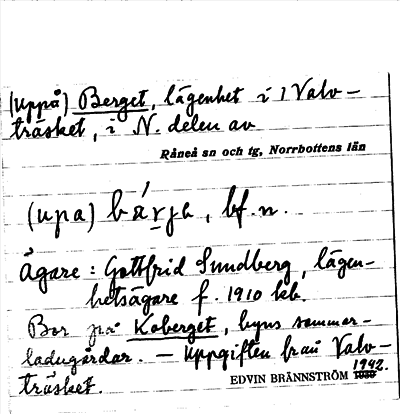 (uppå) Berget, lägenhet i 1 Valv-
träsket, i N. delen av
Råneå sn och tg, Norrbottens län
(upa) bárja, bf. n.
Ägare: Gottfrid Sundberg, lägen-
hetsägare f. 1910 hb.
Bor på Koberget, byns sommar-
ladugårdar. – Uppgiften från Valv-
träsket.
1942.
EDVIN BRÄNNSTRÖM 1930